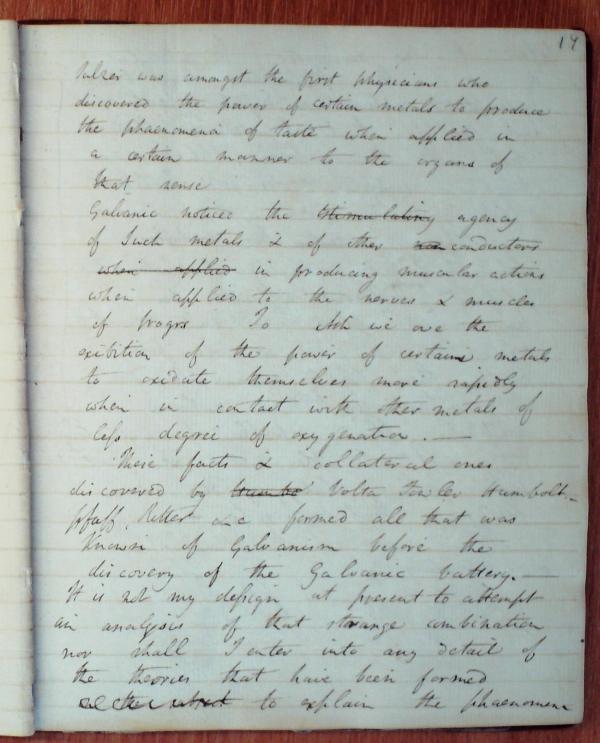 19
Sulzer was amongst the first physicians who
discovered the power of certain metals to produce
the phaenomena of taste when applied in
a certain manner to the organs of
that sense
Galvanic notices the stimulating agency
of such metals & of other non conductors
when applied in producing muscular actions
when applied to the nerves & muscles
of frogs To Ash we owe the
exibition of the power of certain metals
to oxidate themselves more rapidly
when in contact with other metals of
less degree of oxygenation. —
These facts & collateral ones
discovered by Humbo Volta Fowler Humbolt-
Pfaff Ritter &c formed all that was
known of Galvanism before the
discovery of the Galvanic battery. —
It is not my design at present to attempt
an analysis of that strange combination
nor shall I enter into any detail of
the theories that have been formed
on the subject to explain the phaenomena